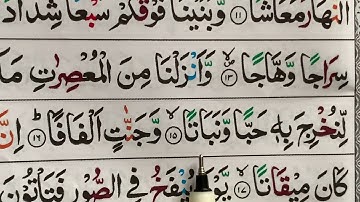 النَّهَارَ مَعَاشًا ۝۱۱ وَّبَنَيْنَا فَوْقَكُمْ سَبْعًا شِدَادًا
سِرَاجًا وَّهَّاجًا ۝۱۳ وَّاَنْزَلْنَا مِنَ الْمُعْصِرٰتِ
لِّنُخْرِجَ بِهٖ حَبًّا وَّنَبَاتًا ۝۱۵ وَّجَنّٰتٍ اَلْفَافًا ۝۱۶ اِنَّ
كَانَ مِيْقَاتًا ۝۱۷ يَّوْمَ يُنْفَخُ فِى الصُّوْرِ فَتَاْتُوْنَ